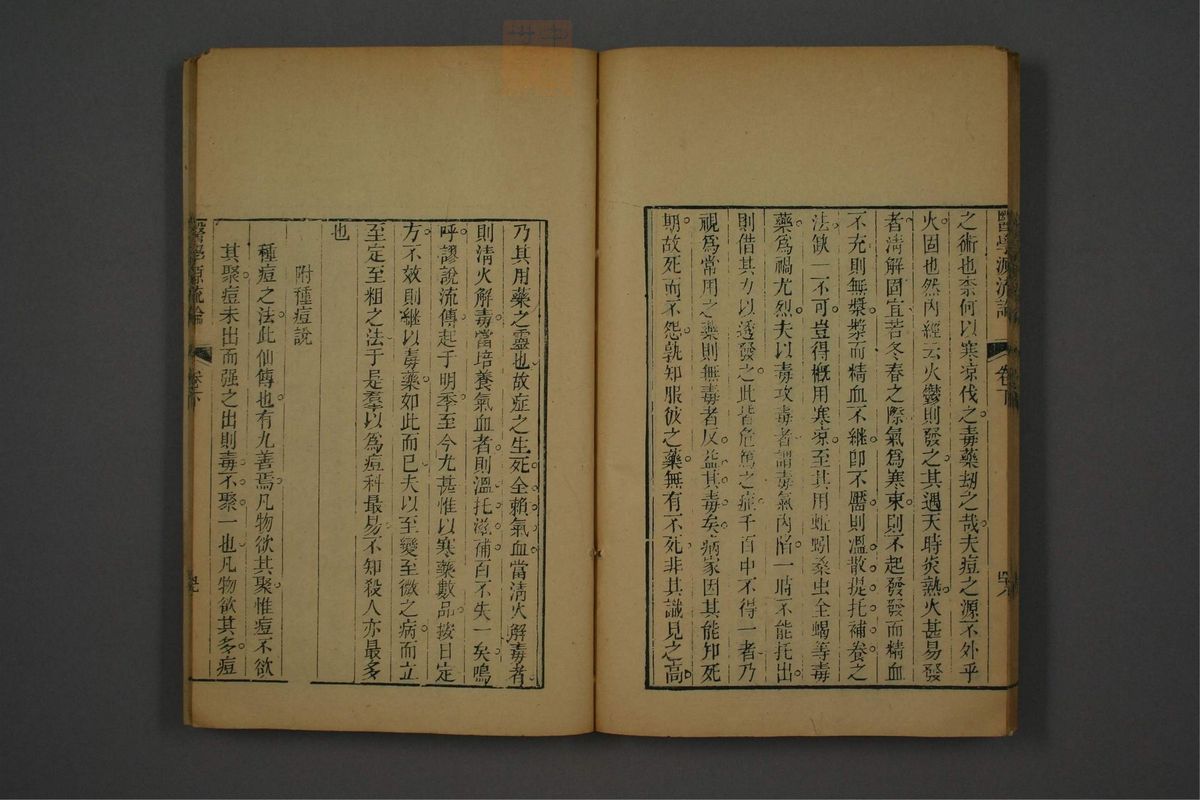 醫學源流論
卷下
之術也奈何以寒凉伐之毒藥刼之哉夫痘之源不外乎
火固也然内經云火鬱則發之其遇天時炎熱火甚易發
者清解固宜若冬春之際氣爲寒束則不起發發而精血
不充則無漿漿而精血不继卽不靨則溫散提托補養之
法缺一不可豈得槪用寒凉至其用蚯蚓桑虫全蝎等毒
藥爲禍尤烈夫以毒攻毒者謂毒氣内陷一時不能托出
則借其力以透發之此皆危篤之症千百中不得一者乃
視爲常用之藥則無毒者反益其毒矣病家因其能知死
期故死而不怨孰知服彼之藥無有不死非其識見之高
乃其用藥之靈也故症之生死全賴氣血當清火解毒者
則清火解毒當培養氣血者則溫托滋補百不失一矣嗚
呼謬說流傳起于明季至今尤甚惟以寒藥數品按日定
方不效則継以毒藥如此而已夫以至變至微之病而立
至定至粗之法于是羣以爲痘科最易不知殺人亦最多
也
附種痘說
種痘之法此仙傳也有九善焉凡物欲其聚惟痘不欲
其聚痘未出而强之出則毒不聚一也凡物欲其多痘
醫學源流論
卷下